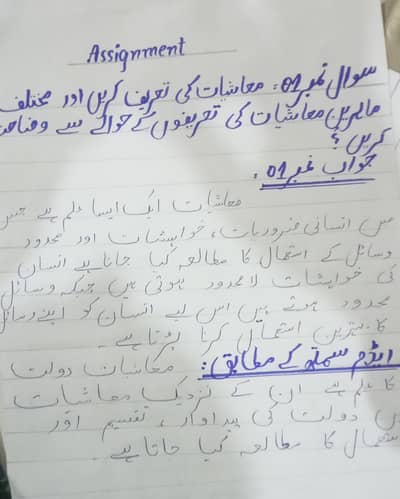 Assignment
سوال نمبر 01: معاشیات کی تعریف کریں اور مختلف
ماہرین معاشیات کی تعریفوں کے حوالے سے وضاحت
کریں ؟
جواب نمبر 01:
معاشیات ایک ایسا علم ہے جس
میں انسانی ضروریات، خواہشات اور محدود
وسائل کے استعمال کا مطالعہ کیا جاتا ہے انسان
کی خواہشات لا محدود ہوتی ہیں جبکہ وسائل
محدود ہوتے ہیں اس لیے انسان کو اپنے وسائل
کا بہترین استعمال کرنا پڑتا ہے۔
ایڈم سمتھ کے مطابق:
معاشیات دولت
کا علم ہے ان کے نزدیک معاشیات
میں دولت کی پیداوار، تقسیم اور
استعمال کا مطالعہ کیا جاتا ہے۔